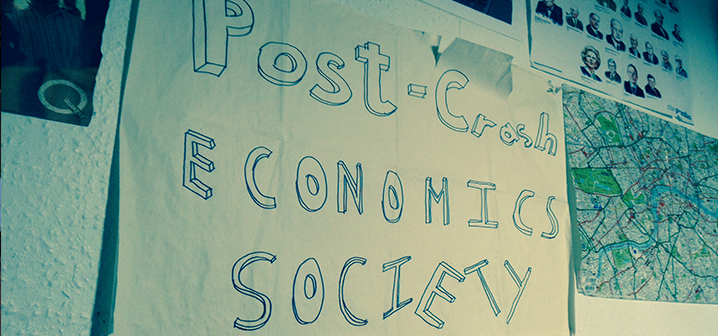 Post-Crash
ECONOMICS
SOCIETY